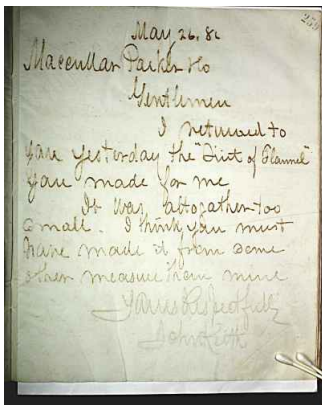 259
May 26. 81
Maccullar Parker & Co
Gentlemen
I returned to
you yesterday the "Suit of Flannel"
you made for me
It was altogather too
small. I think you must
have made it from some
other measure than mine
Yours Respectfully
John Keith